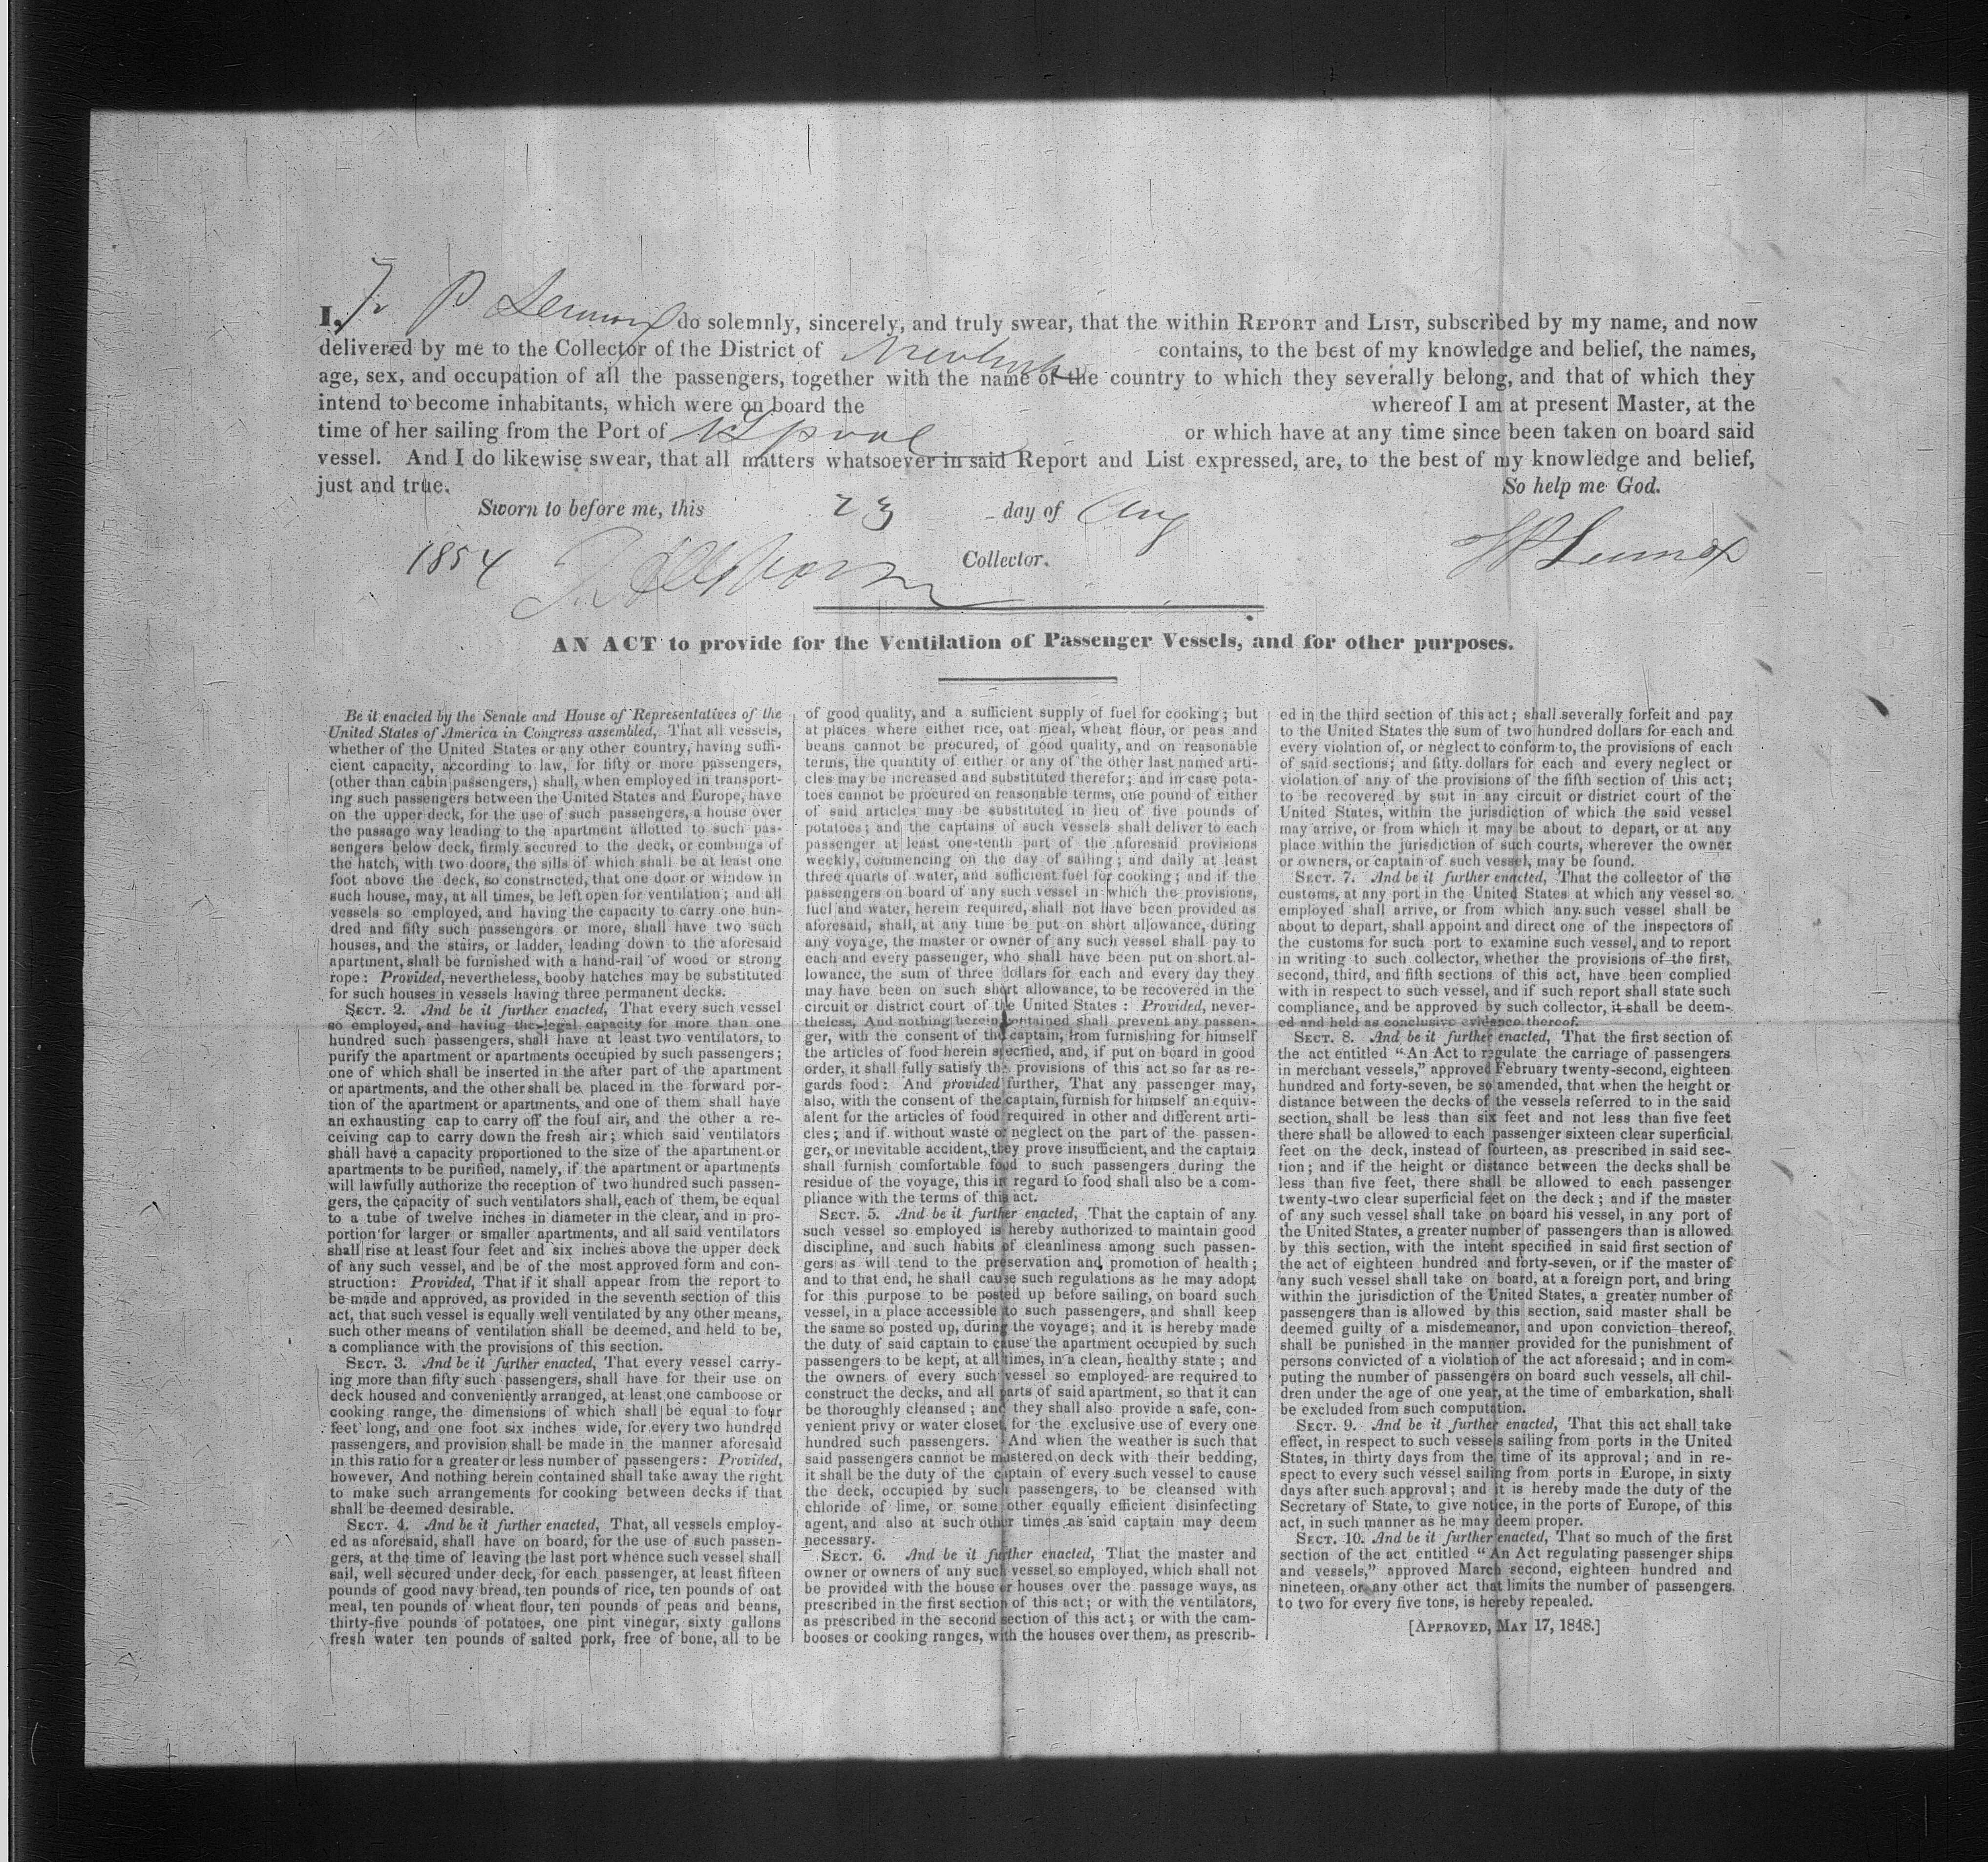 I, P Lennox do solemnly, sincerely, and truly swear, that the within REPORT and LIST, subscribed by my name, and now
delivered by me to the Collector of the District of contains, to the best of my knowledge and belief, the names,
age, sex, and occupation of all the passengers, together with the name of the country to which they severally belong, and that of which they
intend to become inhabitants, which were on board the whereof I am at present Master, at the
time of her sailing from the Port of or which have at any time since been taken on board said
vessel. And I do likewise swear, that all matters whatsoever in said Report and List expressed, are, to the best of my knowledge and belief,
just and true. So help me God.
Sworn to before me, this 23 day of Aug
1854 Collector. Lennox
AN ACT to provide for the Ventilation of Passenger Vessels, and for other purposes.
Be it enacted by the Senate and House of Representatives of the
United States of America in Congress assembled, That all vessels,
whether of the United States or any other country, having suffi-
cient capacity, according to law, for fifty or more passengers,
(other than cabin passengers,) shall, when employed in transport-
ing such passengers between the United States and Europe, have
on the upper deck, for the use of such passengers, a house over
the passage way leading to the apartment allotted to such pas-
sengers below deck, firmly secured to the deck, or combings of
the hatch, with two doors, the sills of which shall be at least one
foot above the deck, so constructed, that one door or window in
such house, may, at all times, be left open for ventilation; and all
vessels so employed, and having the capacity to carry one hun-
dred and fifty such passengers or more, shall have two such
houses, and the stairs, or ladder, leading down to the aforesaid
apartment, shall be furnished with a hand-rail of wood or strong
rope: Provided, nevertheless, booby hatches may be substituted
for such houses in vessels having three permanent decks.
SECT. 2. And be it further enacted, That every such vessel
so employed, and having the legal capacity for more than one
hundred such passengers, shall have at least two ventilators, to
purify the apartment or apartments occupied by such passengers;
one of which shall be inserted in the after part of the apartment
or apartments, and the other shall be placed in the forward por-
tion of the apartment or apartments, and one of them shall have
an exhausting cap to carry off the foul air, and the other a re-
ceiving cap to carry down the fresh air; which said ventilators
shall have a capacity proportioned to the size of the apartment or
apartments to be purified, namely, if the apartment or apartments
will lawfully authorize the reception of two hundred such passen-
gers, the capacity of such ventilators shall, each of them, be equal
to a tube of twelve inches in diameter in the clear, and in pro-
portion for larger or smaller apartments, and all said ventilators
shall rise at least four feet and six inches above the upper deck
of any such vessel, and be of the most approved form and con-
struction: Provided, That if it shall appear from the report to
be made and approved, as provided in the seventh section of this
act, that such vessel is equally well ventilated by any other means,
such other means of ventilation shall be deemed, and held to be,
a compliance with the provisions of this section.
SECT. 3. And be it further enacted, That every vessel carry-
ing more than fifty such passengers, shall have for their use on
deck housed and conveniently arranged, at least one camboose or
cooking range, the dimensions of which shall be equal to four
feet long, and one foot six inches wide, for every two hundred
passengers, and provision shall be made in the manner aforesaid
in this ratio for a greater or less number of passengers: Provided,
however, And nothing herein contained shall take away the right
to make such arrangements for cooking between decks if that
shall be deemed desirable.
SECT. 4. And be it further enacted, That, all vessels employ-
ed as aforesaid, shall have on board, for the use of such passen-
gers, at the time of leaving the last port whence such vessel shall
sail, well secured under deck, for each passenger, at least fifteen
pounds of good navy bread, ten pounds of rice, ten pounds of oat
meal, ten pounds of wheat flour, ten pounds of peas and beans,
thirty-five pounds of potatoes, one pint vinegar, sixty gallons
fresh water ten pounds of salted pork, free of bone, all to be
of good quality, and a sufficient supply of fuel for cooking; but
at places where either rice, oat meal, wheat flour, or peas and
beans cannot be procured, of good quality, and on reasonable
terms, the quantity of either or any of the other last named arti-
cles may be increased and substituted therefor; and in case pota-
toes cannot be procured on reasonable terms, one pound of either
of said articles may be substituted in lieu of five pounds of
potatoes; and the captains of such vessels shall deliver to each
passenger at least one-tenth part of the aforesaid provisions
weekly, commencing on the day of sailing; and daily at least
three quarts of water, and sufficient fuel for cooking; and if the
passengers on board of any such vessel in which the provisions,
fuel and water, herein required, shall not have been provided as
aforesaid, shall, at any time be put on short allowance, during
any voyage, the master or owner of any such vessel shall pay to
each and every passenger, who shall have been put on short al-
lowance, the sum of three dollars for each and every day they
may have been on such short allowance, to be recovered in the
circuit or district court of the United States: Provided, never-
theless, And nothing herein contained shall prevent any passen-
ger, with the consent of the captain, from furnishing for himself
the articles of food herein specified, and, if put on board in good
order, it shall fully satisfy the provisions of this act so far as re-
gards food: And provided further, That any passenger may,
also, with the consent of the captain, furnish for himself an equiv-
alent for the articles of food required in other and different arti-
cles; and if without waste or neglect on the part of the passen-
ger, or inevitable accident, they prove insufficient, and the captain
shall furnish comfortable food to such passengers during the
residue of the voyage, this in regard to food shall also be a com-
pliance with the terms of this act.
SECT. 5. And be it further enacted, That the captain of any
such vessel so employed is hereby authorized to maintain good
discipline, and such habits of cleanliness among such passen-
gers as will tend to the preservation and promotion of health;
and to that end, he shall cause such regulations as he may adopt
for this purpose to be posted up before sailing, on board such
vessel, in a place accessible to such passengers, and shall keep
the same so posted up, during the voyage; and it is hereby made
the duty of said captain to cause the apartment occupied by such
passengers to be kept, at all times, in a clean, healthy state; and
the owners of every such vessel so employed are required to
construct the decks, and all parts of said apartment, so that it can
be thoroughly cleansed; and they shall also provide a safe, con-
venient privy or water closet, for the exclusive use of every one
hundred such passengers. And when the weather is such that
said passengers cannot be mustered on deck with their bedding,
it shall be the duty of the captain of every such vessel to cause
the deck, occupied by such passengers, to be cleansed with
chloride of lime, or some other equally efficient disinfecting
agent, and also at such other times as said captain may deem
necessary.
SECT. 6. And be it further enacted, That the master and
owner or owners of any such vessel so employed, which shall not
be provided with the house or houses over the passage ways, as
prescribed in the first section of this act; or with the ventilators,
as prescribed in the second section of this act; or with the cam-
booses or cooking ranges, with the houses over them, as prescrib-
ed in the third section of this act; shall severally forfeit and pay
to the United States the sum of two hundred dollars for each and
every violation of, or neglect to conform to, the provisions of each
of said sections; and fifty dollars for each and every neglect or
violation of any of the provisions of the fifth section of this act;
to be recovered by suit in any circuit or district court of the
United States, within the jurisdiction of which the said vessel
may arrive, or from which it may be about to depart, or at any
place within the jurisdiction of such courts, wherever the owner
or owners, or captain of such vessel, may be found.
SECT. 7. And be it further enacted, That the collector of the
customs, at any port in the United States at which any vessel so
employed shall arrive, or from which any such vessel shall be
about to depart, shall appoint and direct one of the inspectors of
the customs for such port to examine such vessel, and to report
in writing to such collector, whether the provisions of the first,
second, third, and fifth sections of this act, have been complied
with in respect to such vessel, and if such report shall state such
compliance, and be approved by such collector, it shall be deem-
ed and held as conclusive evidence thereof.
SECT. 8. And be it further enacted, That the first section of
the act entitled "An Act to regulate the carriage of passengers
in merchant vessels," approved February twenty-second, eighteen
hundred and forty-seven, be so amended, that when the height or
distance between the decks of the vessels referred to in the said
section, shall be less than six feet and not less than five feet
there shall be allowed to each passenger sixteen clear superficial
feet on the deck, instead of fourteen, as prescribed in said sec-
tion; and if the height or distance between the decks shall be
less than five feet, there shall be allowed to each passenger
twenty-two clear superficial feet on the deck; and if the master
of any such vessel shall take on board his vessel, in any port of
the United States, a greater number of passengers than is allowed
by this section, with the intent specified in said first section of
the act of eighteen hundred and forty-seven, or if the master of
any such vessel shall take on board, at a foreign port, and bring
within the jurisdiction of the United States, a greater number of
passengers than is allowed by this section, said master shall be
deemed guilty of a misdemeanor, and upon conviction thereof,
shall be punished in the manner provided for the punishment of
persons convicted of a violation of the act aforesaid; and in com-
puting the number of passengers on board such vessels, all chil-
dren under the age of one year, at the time of embarkation, shall
be excluded from such computation.
SECT. 9. And be it further enacted, That this act shall take
effect, in respect to such vessels sailing from ports in the United
States, in thirty days from the time of its approval; and in re-
spect to every such vessel sailing from ports in Europe, in sixty
days after such approval; and it is hereby made the duty of the
Secretary of State, to give notice, in the ports of Europe, of this
act, in such manner as he may deem proper.
SECT. 10. And be it further enacted, That so much of the first
section of the act entitled "An Act regulating passenger ships
and vessels," approved March second, eighteen hundred and
nineteen, or any other act that limits the number of passengers
to two for every five tons, is hereby repealed.
[APPROVED, MAY 17, 1848.]